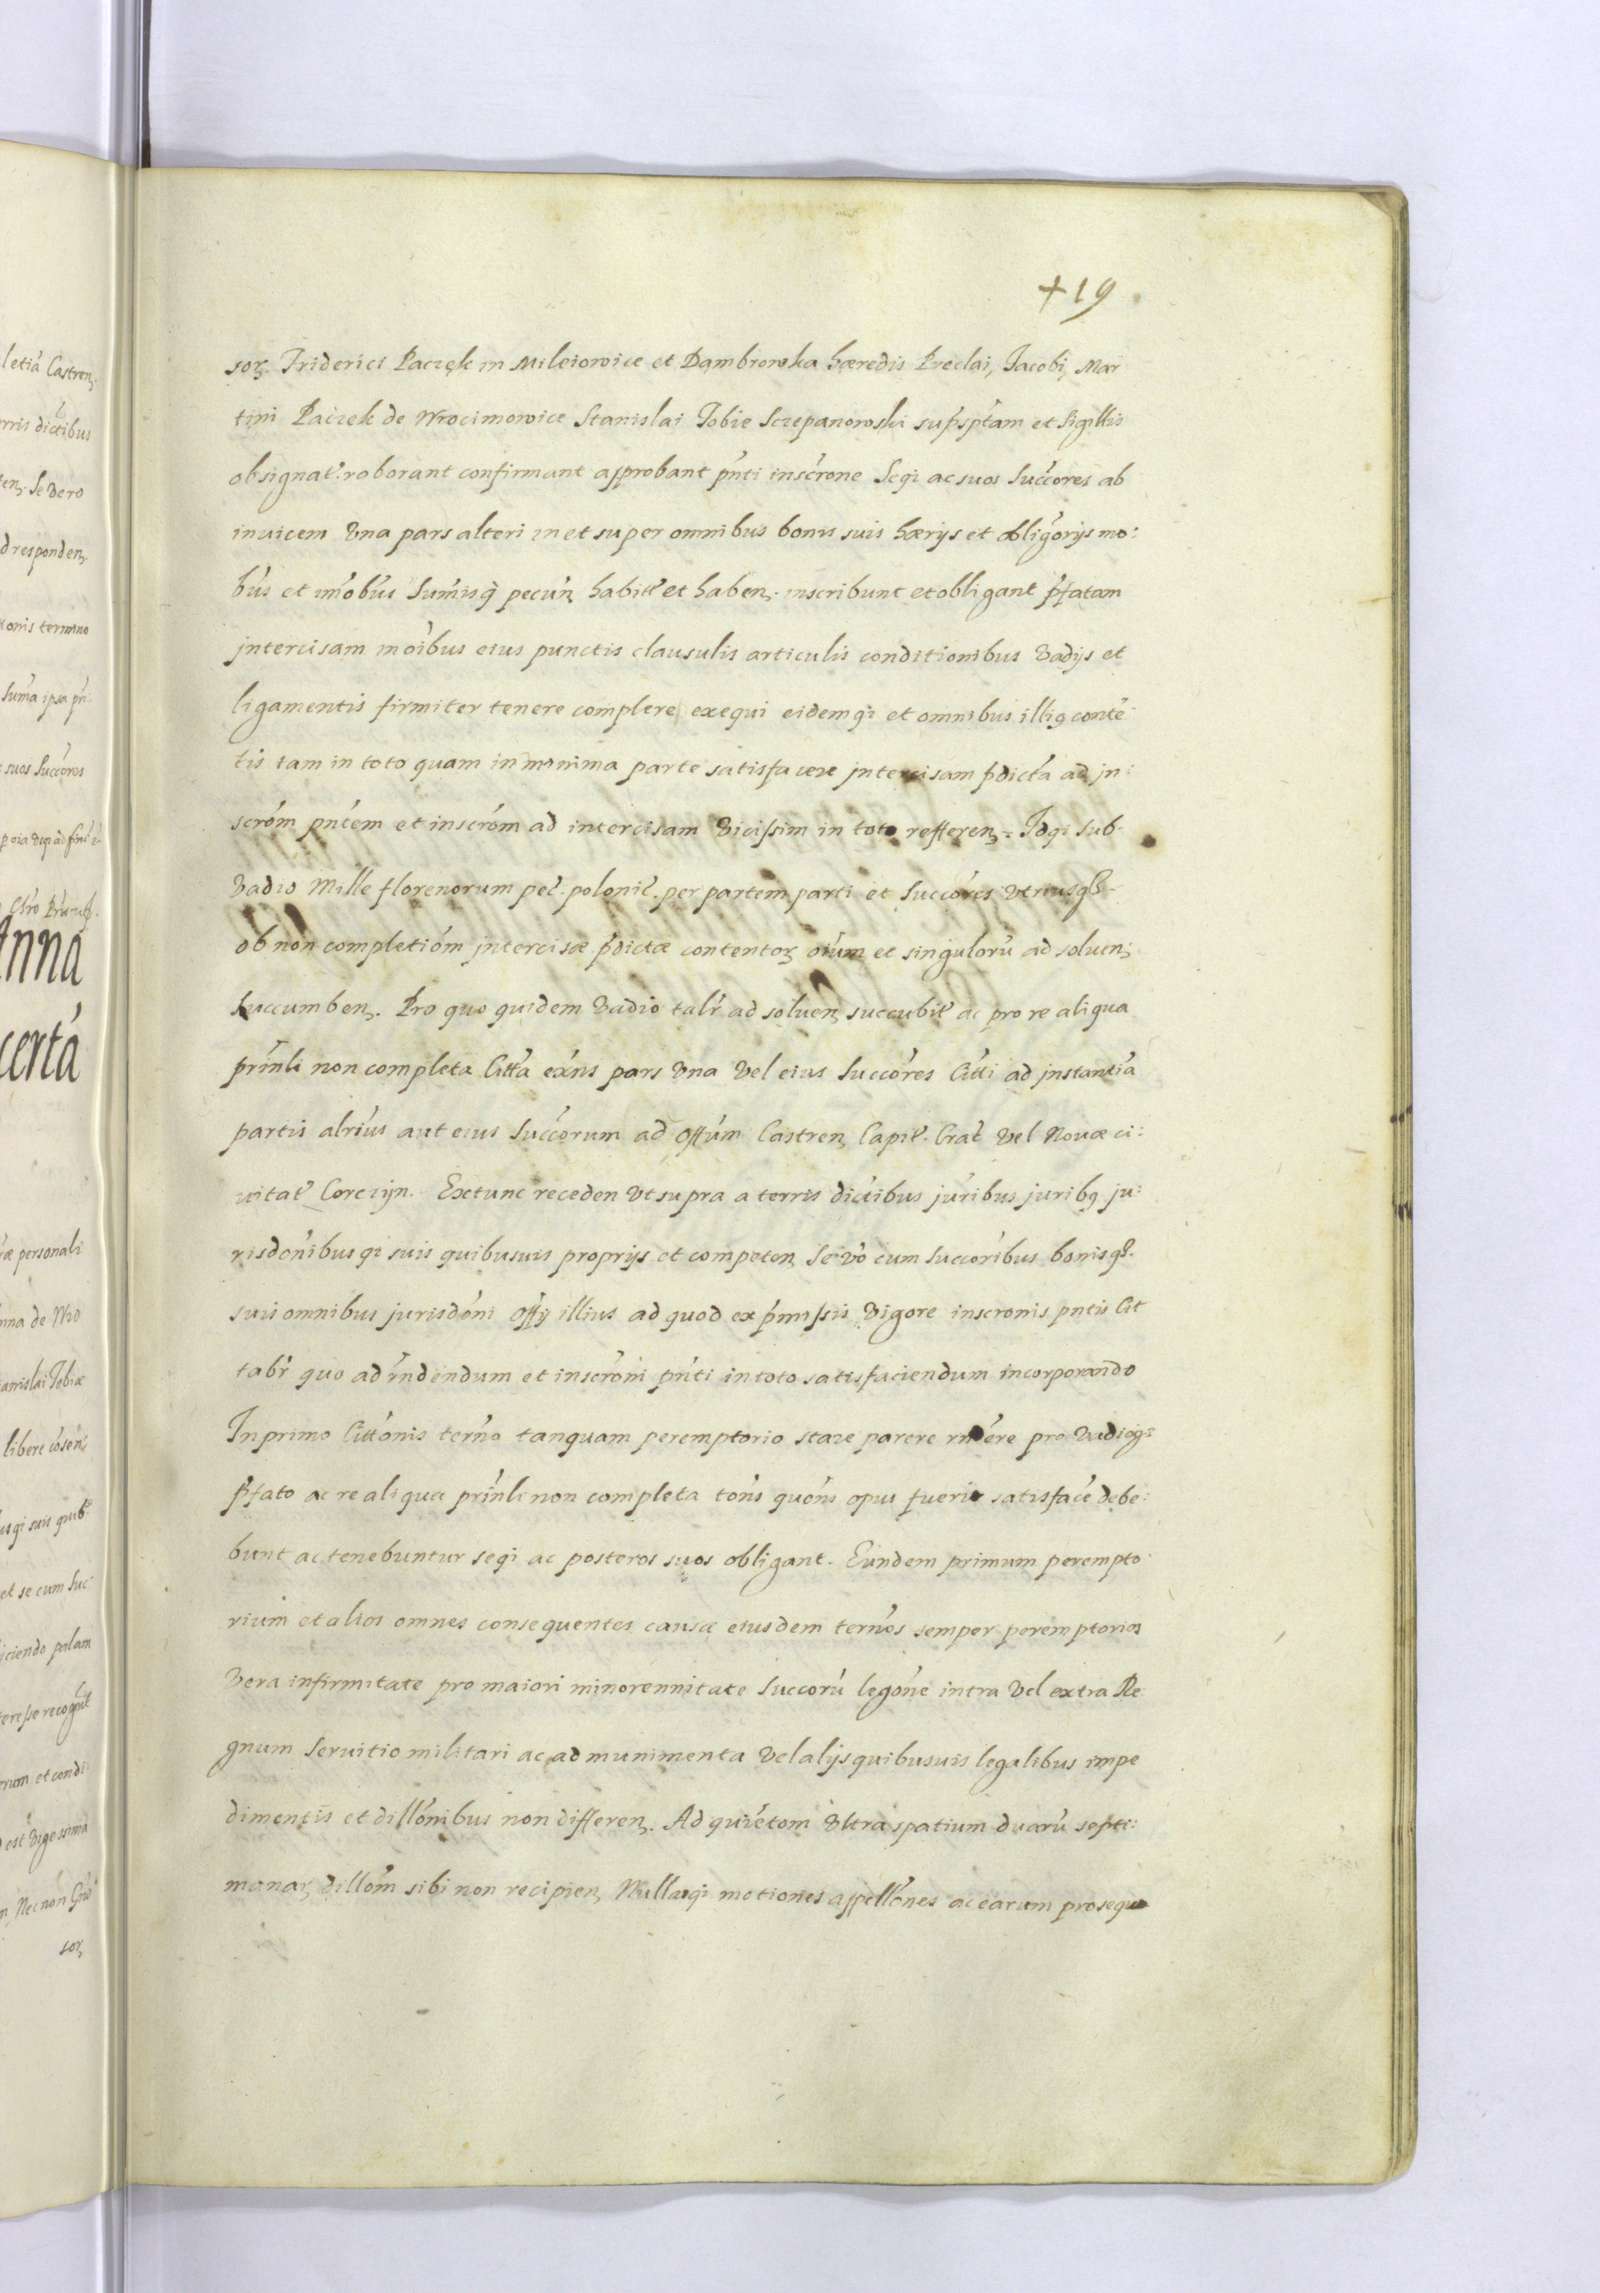 +19
soꝝ Friderici Paczek in Mileiowice et Dąmbrowka hæredis Preclai, Jacobi, Mar
tini Paczek de Wrocimowice Stanislai Tobie Sczepanowski supsptam et Sigillis
obsignat. roborant confirmant approbant pnti inscrone Seqi ac suos Succores ab
inuicem Vna pars alteri in et super omnibus bonis suis hærijs et obligorijs mo:
bus et imobus Sumisq pecun habit et haben. inscribunt et obligant pfatam
intercisam in oibus eius punctis clausulis articulis conditionibus Vadijs et
ligamentis firmiter tenere complere exequi eidemqi et omnibus illiq conte
tis tam in toto quam in minima parte satisfacere intercisam pdicta ad in:
scrom pntem et inscrom ad intercisam Vicissim in toto refferen. Idqi sub
Vadio Mille florenorum pec. polonic. per partem parti et Succores vtriusq
ob non completiom intercisæ pdictæ contentoꝝ oium et singuloru ad soluen
succumben. Pro quo quidem Vadio talr ad soluen succubit ac pro re aliqua
prinli non completa Citta exns pars Vna Vel eius Succores Citti ad instantia
partis alrius aut eius Succorum ad Offum Castren Capit. Crac Vel Nouæ ci:
uitat Corczyn. Extunc receden vt supra a terris dictibus juribus juribq ju:
risdonibusqi suis quibusuis proprijs et competen Se vo cum succoribus bonisq
suis omnibus jurisdoni Offij illius ad quod ex pmissis Vigore inscronis pntis Cit
tabr quo ad rndendum et inscroni pnti in toto satisfaciendum incorporando
In primo Cittonis terno tanquam peremptorio stare parere rndere pro Vadioqi
pfato ac re aliqua prinli non completa tons quons opus fuerit satisface debe:
bunt ac tenebuntur seqi ac posteros suos obligant. Eundem primum perempto
rium et alios omnes consequentes causæ eiusdem ternos semper peremptorios
Vera infirmitate pro maiori minorennitate Succoru legone intra Vel extra Re
gnum Seruitio militari ac ad munimenta Vel alijs quibusuis legalibus impe
dimentis et dillonibus non differen. Ad quietom Vltra spatium duaru septi:
manaꝝ dillom sibi non recipien Nullasqi motiones appellones ac earum prosequ